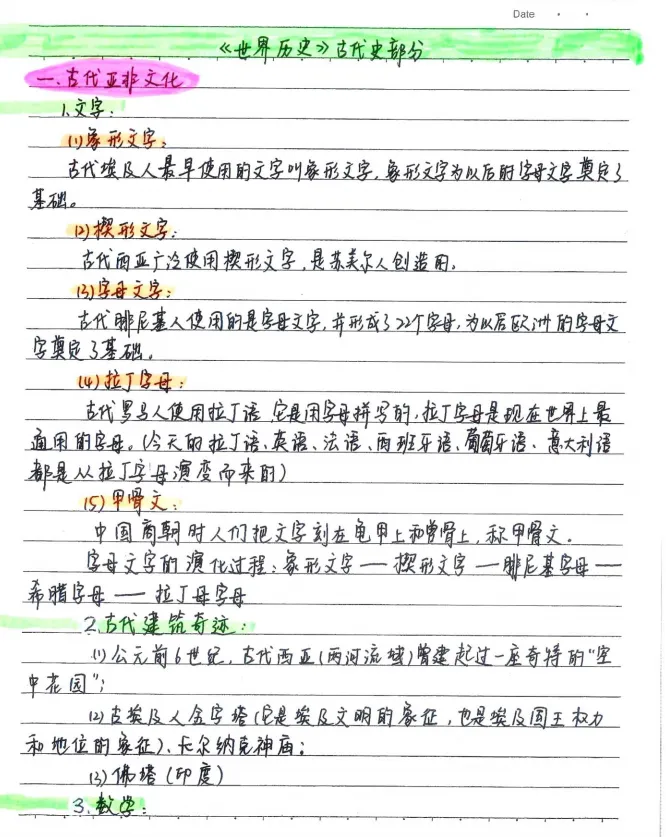 Date · ·
《世界历史》古代史部分
一.古代亚非文化
1.文字:
(1)象形文字:
古代埃及人最早使用的文字叫象形文字,象形文字为以后的字母文字奠定了
基础。
(2)楔形文字:
古代西亚广泛使用楔形文字,是苏美尔人创造用。
(3)字母文字:
古代腓尼基人使用的是字母文字,并形成了22个字母,为以后欧洲的字母文
字奠定了基础。
(4)拉丁字母:
古代罗马人使用拉丁语,它是用字母拼写的,拉丁字母是现在世界上最
通用的字母。(今天的拉丁语、英语、法语、西班牙语、葡萄牙语、意大利语
都是从拉丁字母演变而来的)
(5)甲骨文:
中国商朝时人们把文字刻在龟甲上和兽骨上,称甲骨文.
字母文字的演化过程:象形文字——楔形文字——腓尼基字母——
希腊字母——拉丁母字母
2.古代建筑奇迹:
(1)公元前6世纪,古代西亚(两河流域)曾建起过一座奇特的"空
中花园";
(2)古埃及人金字塔(它是埃及文明的象征,也是埃及国王权力
和地位的象征)、卡尔纳克神庙;
(3)佛塔(印度)
3.数学: